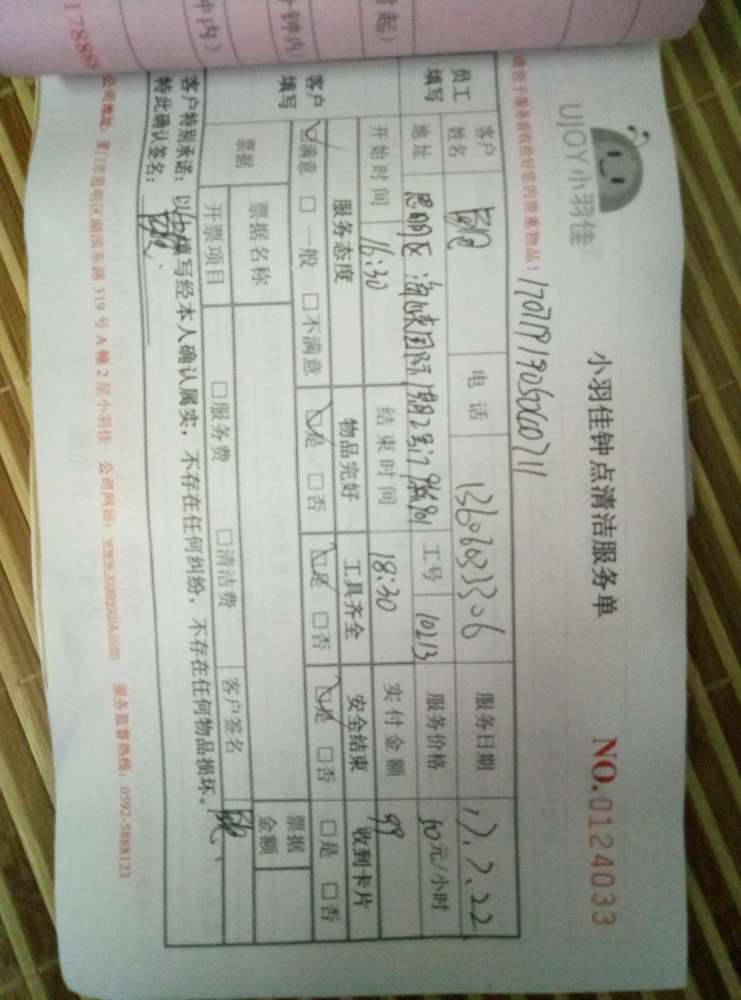 UJOY小羽佳
小羽佳钟点清洁服务单
NO.0124033
请您于服务前收拾好您的贵重物品！
员工填写
客户姓名
电话
服务日期 17.7.22
地址 思明区海峡国际
工号 10213
服务价格 40元/小时
开始时间 16:30 结束时间 18:30 实付金额 99
客户填写
服务态度 物品完好 工具齐全 安全结束 收到卡片
☑满意 □一般 □不满意 ☑是 □否 ☑是 □否 ☑是 □否 □是 □否
票据
票据名称
票据金额
开票项目 □服务费 □清洁费 客户签名
客户特别承诺：以上填写经本人确认属实，不存在任何纠纷，不存在任何物品损坏。
特此确认签名：
公司地址：厦门市思明区湖滨东路319号A幢2层小羽佳 公司网站：www.xiaoyujia.com 服务监督热线：0592-5888123